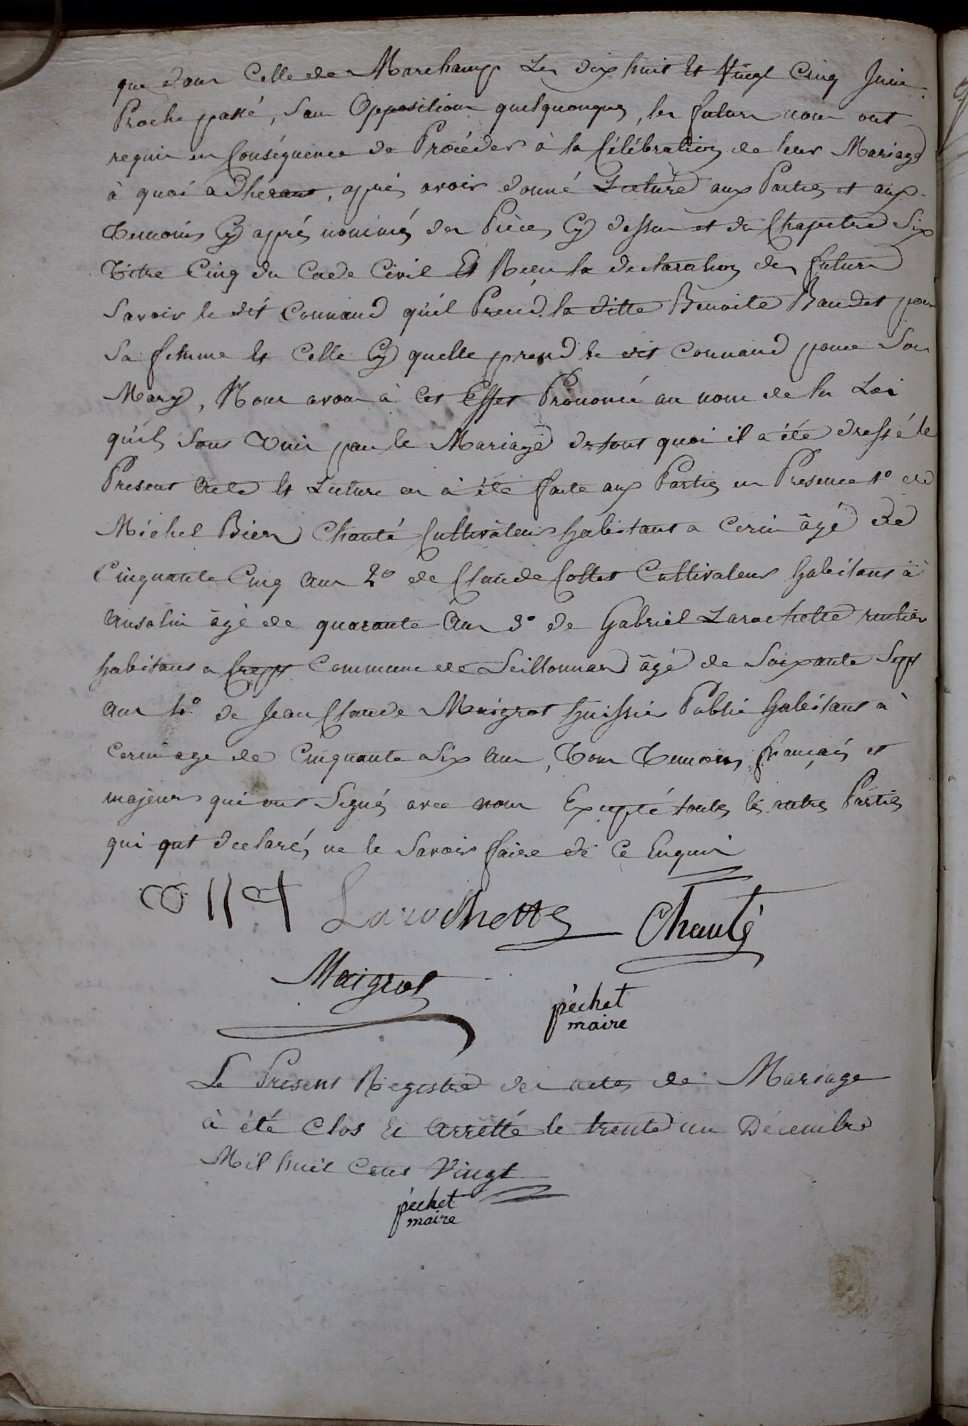 que dans Celle de Marchamp Les dix huit Et Vingt Cinq Juin
Proche passé, Sans Opposition quelquonques, les futurs nous ont
requis en Conséquence de Procéder à la Célébration de leur Mariage
à quoi adhérant, après avoir donné Lecture aux Parties et aux
Temoins Cy après nommés des Pièces Cy dessus et du Chapitre Six
Titre Cinq du Code Civil Et Reçu la declaration des futurs
Savoir le dit Connand qu'il Prend la ditte Benoite Baudet pour
Sa femme Et Celle Cy quelle prend le dit Connand pour Son
Mary, Nous avons à cet Effet Prononcé au nom de la Loi
qu'ils Sont Unis par le Mariage de tout quoi il a été dressé le
Present Acte Et Lecture en à été faite aux Parties en Presence 1° de
Michel Bien Chanté Cultivateur habitant a Cerin âgé de
Cinquante Cinq ans 2° de Claude Collet Cultivateur habitant à
Ansolin âgé de quarante ans 3° de Gabriel Larochette rentier
habitant a Crept Commune de Seillonnaz âgé de Soixante Sept
ans 4° de Jean Claude Maigrot huissier Public habitant à
Cerin age de Cinquante Six ans, Tous Temoins français et
majeurs qui ont Signés avec nous Excepté toutes les autres Parties
qui ont declarés ne le Savoir faire de Ce Enquis
Collet Larochette Chanté
Maigrot
péchet
maire
Le Present Registre des actes de Mariage
à été Clos Et Arretté le trente un Décembre
Mil huit Cent Vingt
péchet
maire